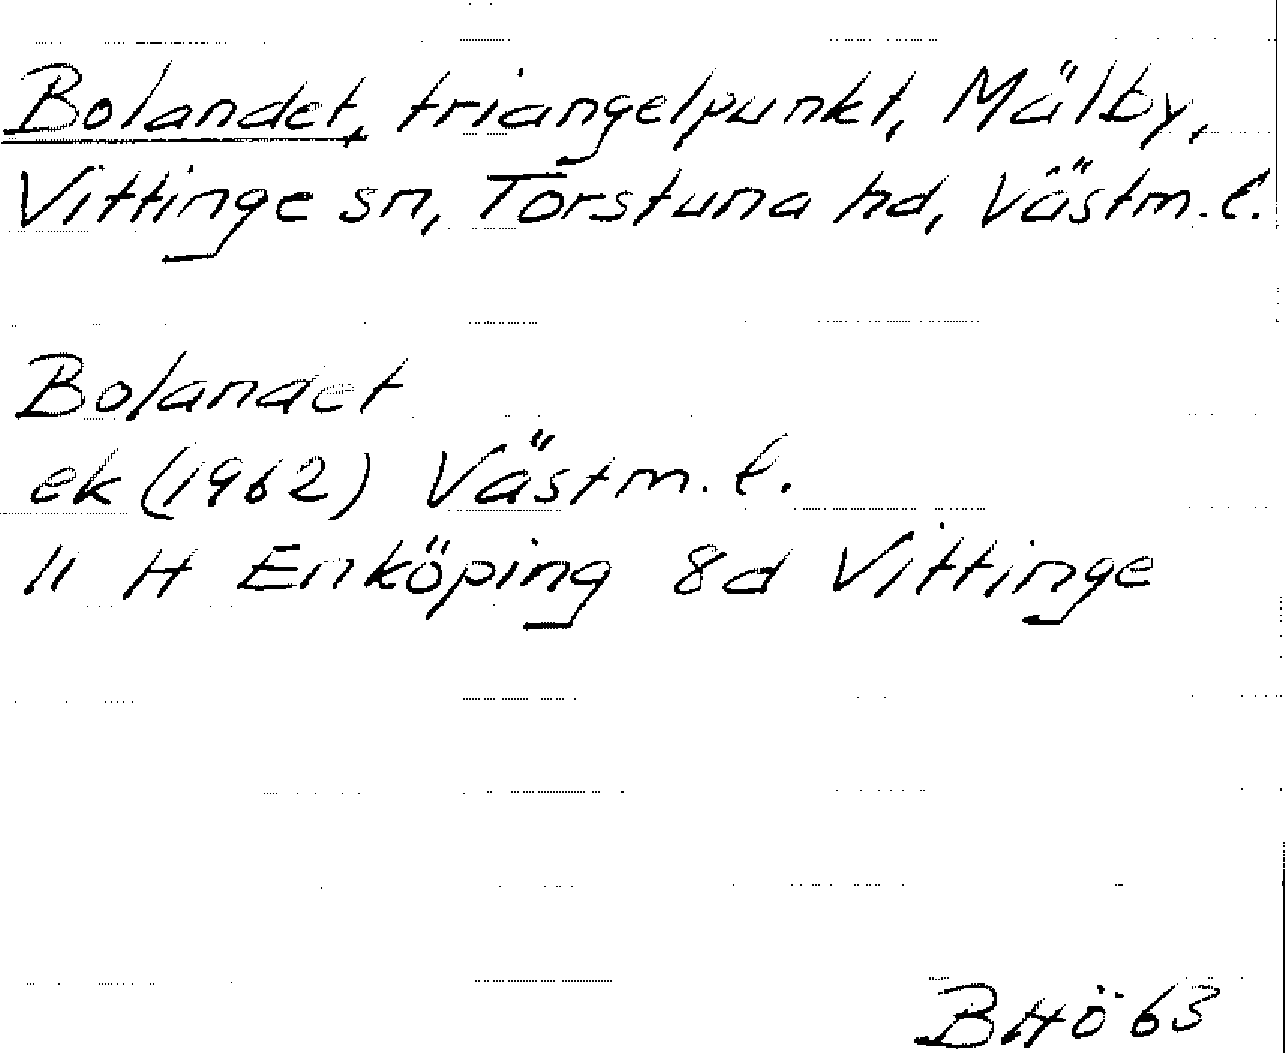 Bolandet, triangelpunkt, Mälby,
Vittinge sn, Torstuna hd, Västm. l.
Bolandet
ek (1962) Västm. l.
11 H Enköping 8d Vittinge
BHÖ 63